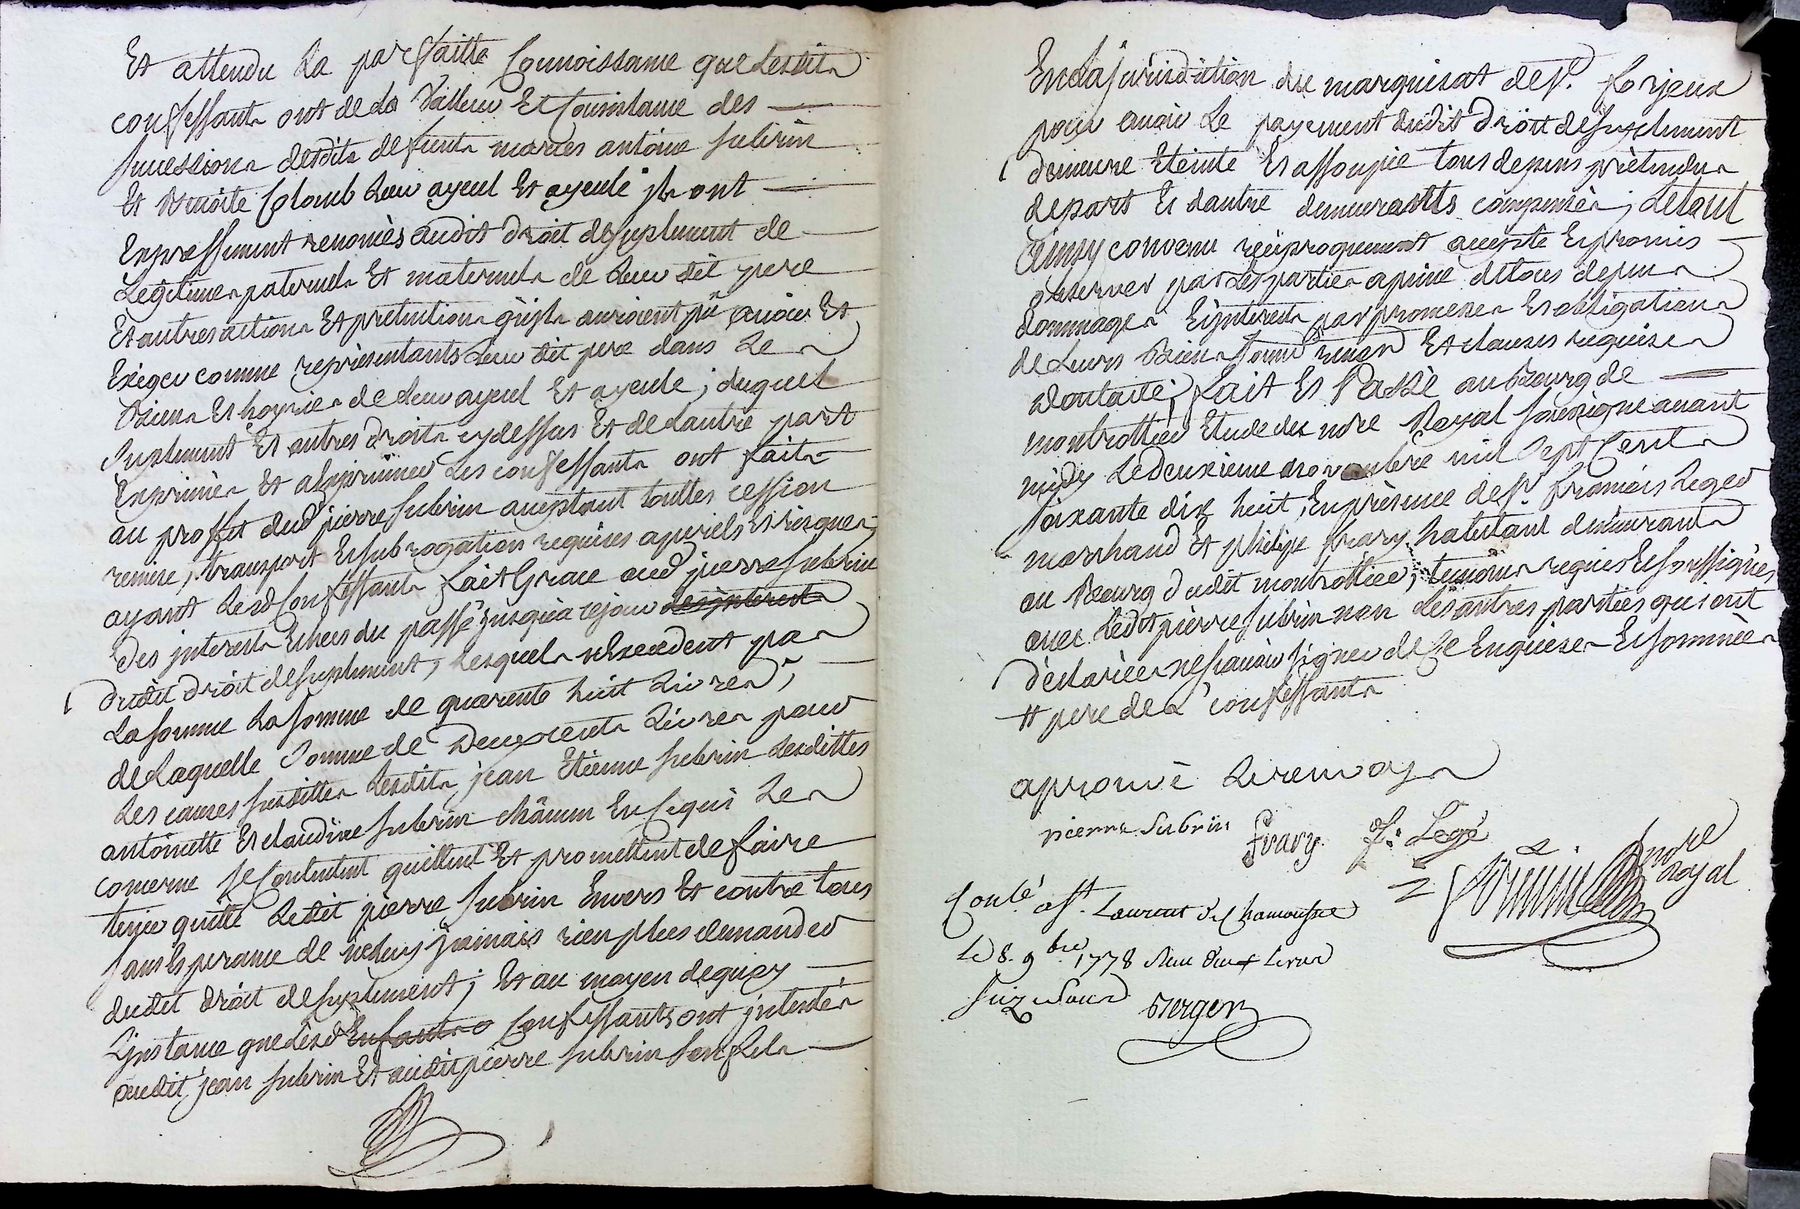 Et attendu La parfaitte Connoissance que Lesdits
confessants ont de la Valleur Et Consistance des
successions desdits defunts mares antoine subrin
Et Benoite Colomb Leur ayeul Et ayeule ils ont
Expressement renoncés audit droit de suplement de
Legitimes paternels Et maternels de Leur dit pere
Et autres actions Et pretentions quils auroient pu avoir Et
Exiger comme représentants Leur dit pere dans Les
Biens Et hoyries de Leur ayeul Et ayeule; duquel
suplement Et autres droits cydessus Et de Lautre part
Exprimés Et a Exprimer Les confessants ont fait
au proffit dud pierre subrin acceptant touttes cession
remise, transport Et subrogation requises a perils Et risques,
ayant Lesd Confessants fait Grace aud pierre subrin
des interests Echeus du passé jusqu'a ce jour des interests
dudit droit de suplement, Lesquels nExcedent pas
La somme La somme de quarente huit Livres,
de Laquelle somme de Deux cents Livres pour
Les causes susdittes Lesdits jean Etienne subrin Lesdittes
antoinette Et claudine subrin châcun En ce qui Les
concerne se Contentent quittent Et promettent de faire
tenir quitte Ledit pierre subrin Envers Et contre tous
sans Esperance de neluy jamais rien plus demander
dudit droit de suplement; Et au moyen de quoy
Linstance que Lesd Enfants Confessants ont intentés
audit jean subrin Et audit pierre subrin son fils
En La jurisdiction du marquisat de st. forjeux
pour avoir Le payement dudit droit de suplement
demeure Eteinte Et assoupie tous depens prétendus
de part Et dautre demeurants compensés, Le tout
Ainsy convenu reciproquement accepté Et promis
observer par Les parties a peine de tous depens
dommages Et interests par promesses Et obligations
de Leurs Biens soumis renon Et clauses requises
dont acte; fait Et Passé au Bourg de
montrottier Etude du nore Royal soussigné avant
midy Le deuxieme novembre mil Sept Cents
soixante dix huit, En présence de sr. françois Leger
marchand Et philipe fvary habitant demeurants
au Bourg dudit montrottier, temoins requis Et soussignés
avec Ledit pierre subrin non Les autres parties qui ont
déclarées ne scavoir signer de ce Enquises Et sommées
# pere des confessants
aprouvé Le renvoy
pierre subrin
fvary
f: Legé
nore Royal
Conlé a st. Laurent de Chamousset
Le 8. 9bre 1778 Reçu Livres
Seize sous
Berger